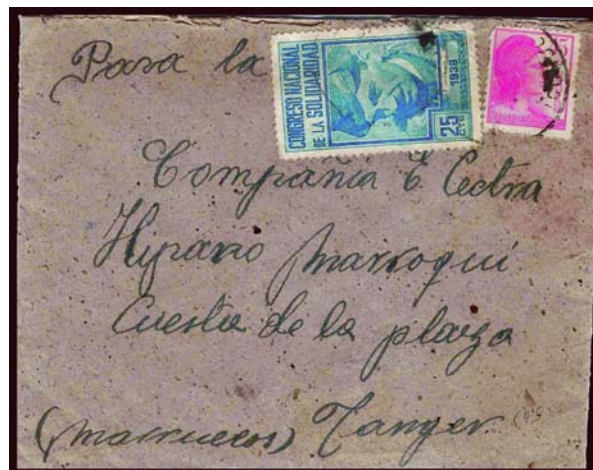 Para la
CONGRESO NACIONAL
DE LA SOLIDARIDAD
1938
25
CTS
Compañia E Cectra
Hipano Marroqui
Cuesta de la plaza
(Marruecos) Tanger